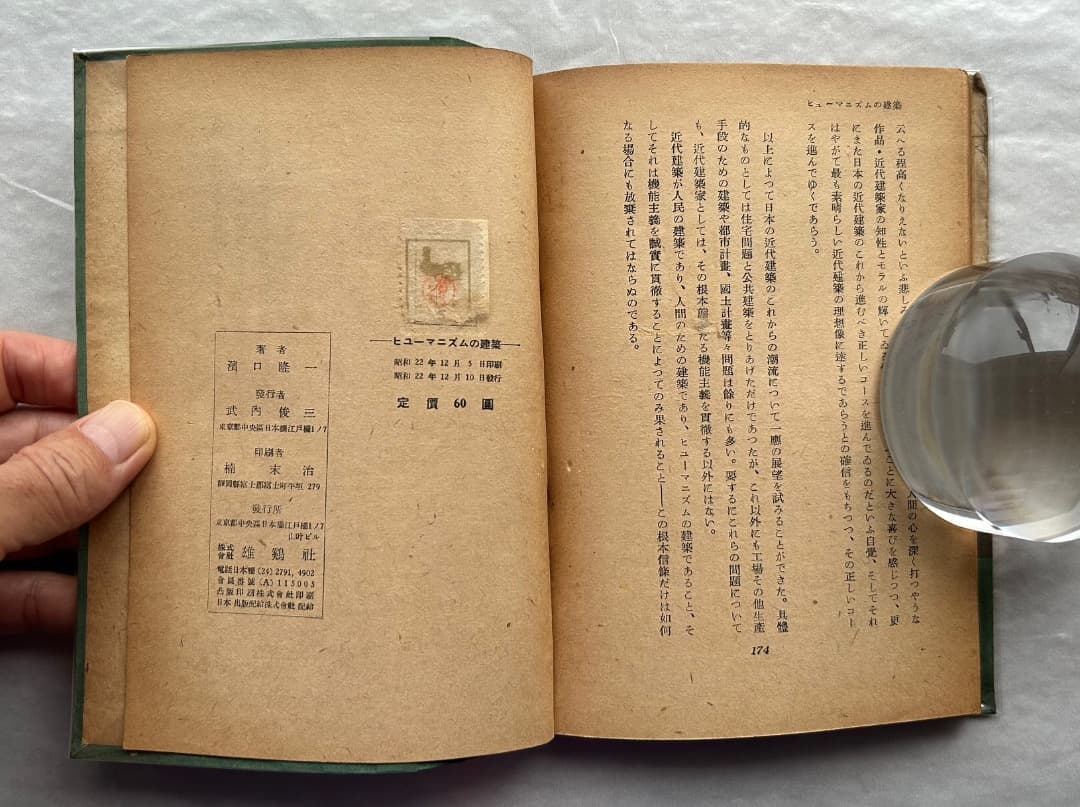 ヒューマニズムの建築
云へる程高くなりえないといふ悲し 人間の心を深く打つやうな
作品・近代建築家の知性とモラルの輝いてゐ ことに大きな喜びを感じつつ、更
にまた日本の近代建築のこれから進むべき正しいコースを進んでゐるのだといふ自覺、そしてそれ
はやがて最も素晴らしい近代建築の理想像に達するであらうとの確信をもちつつ、その正しいコー
スを進んでゆくであらう。
以上によつて日本の近代建築のこれからの潮流について一應の展望を試みることができた。具體
的なものとしては住宅問題と公共建築をとりあげただけであつたが、これ以外にも工場その他生産
手段のための建築や都市計畫、國土計畫等々問題は餘りにも多い。要するにこれらの問題について
も、近代建築家としては、その根本 たる機能主義を貫徹する以外にはない。
近代建築が人民の建築であり、人間のための建築であり、ヒューマニズムの建築であること、そ
してそれは機能主義を誠實に貫徹することによつてのみ果されること――この根本信條だけは如何
なる場合にも放棄されてはならぬのである。
174
―ヒューマニズムの建築―
昭和 22 年 12 月 5 日印刷
昭和 22 年 12 月 10 日發行
定價 60 圓
著者
濱口隆一
發行者
武內俊三
東京都中央區日本橋江戸橋1ノ7
印刷者
楠末治
靜岡縣富士郡富士町平垣 279
發行所
東京都中央區日本橋江戸橋1ノ7
山叶ビル
株式會社 雄鷄社
電話日本橋(24)2791, 4902
會員番號(A)115005
凸版印刷株式會社印刷
日本出版配給株式會社配給